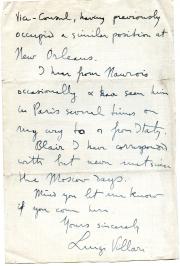 Vice-Consul, having previously
occupied a similar position at
New Orleans.
I hear from Navrois
occasionally & have seen him
in Paris several times on
my way to & from Italy.
Blair I have corresponded
with but never met since
the Moscow days.
Mind you let me know
if you come here
Yours sincerely
Luigi Villari